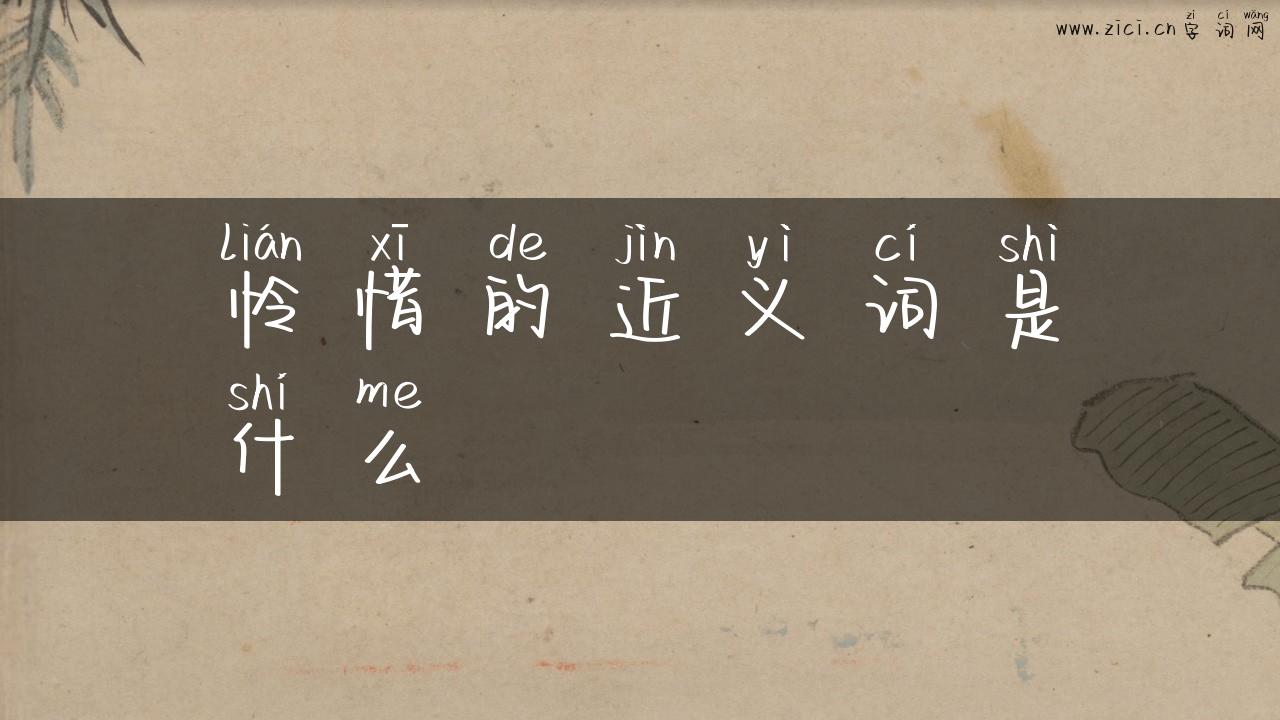 zì cí wǎng
www.zici.cn 字 词 网
lián xī de jìn yì cí shì
怜 惜 的 近 义 词 是
shí me
什 么